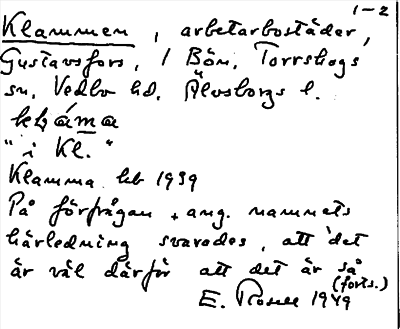 1-2
Klammen, arbetarbostäder,
Gustavsfors, / Bön, Torrskogs
sn, Vedbo hd, Älvsborgs l.
"i Kl."
Klamma kb 1939
På förfrågan + ang. namnets
härledning svarades, att det
är väl därför att det är så
(forts.)
E. Rosell 1949